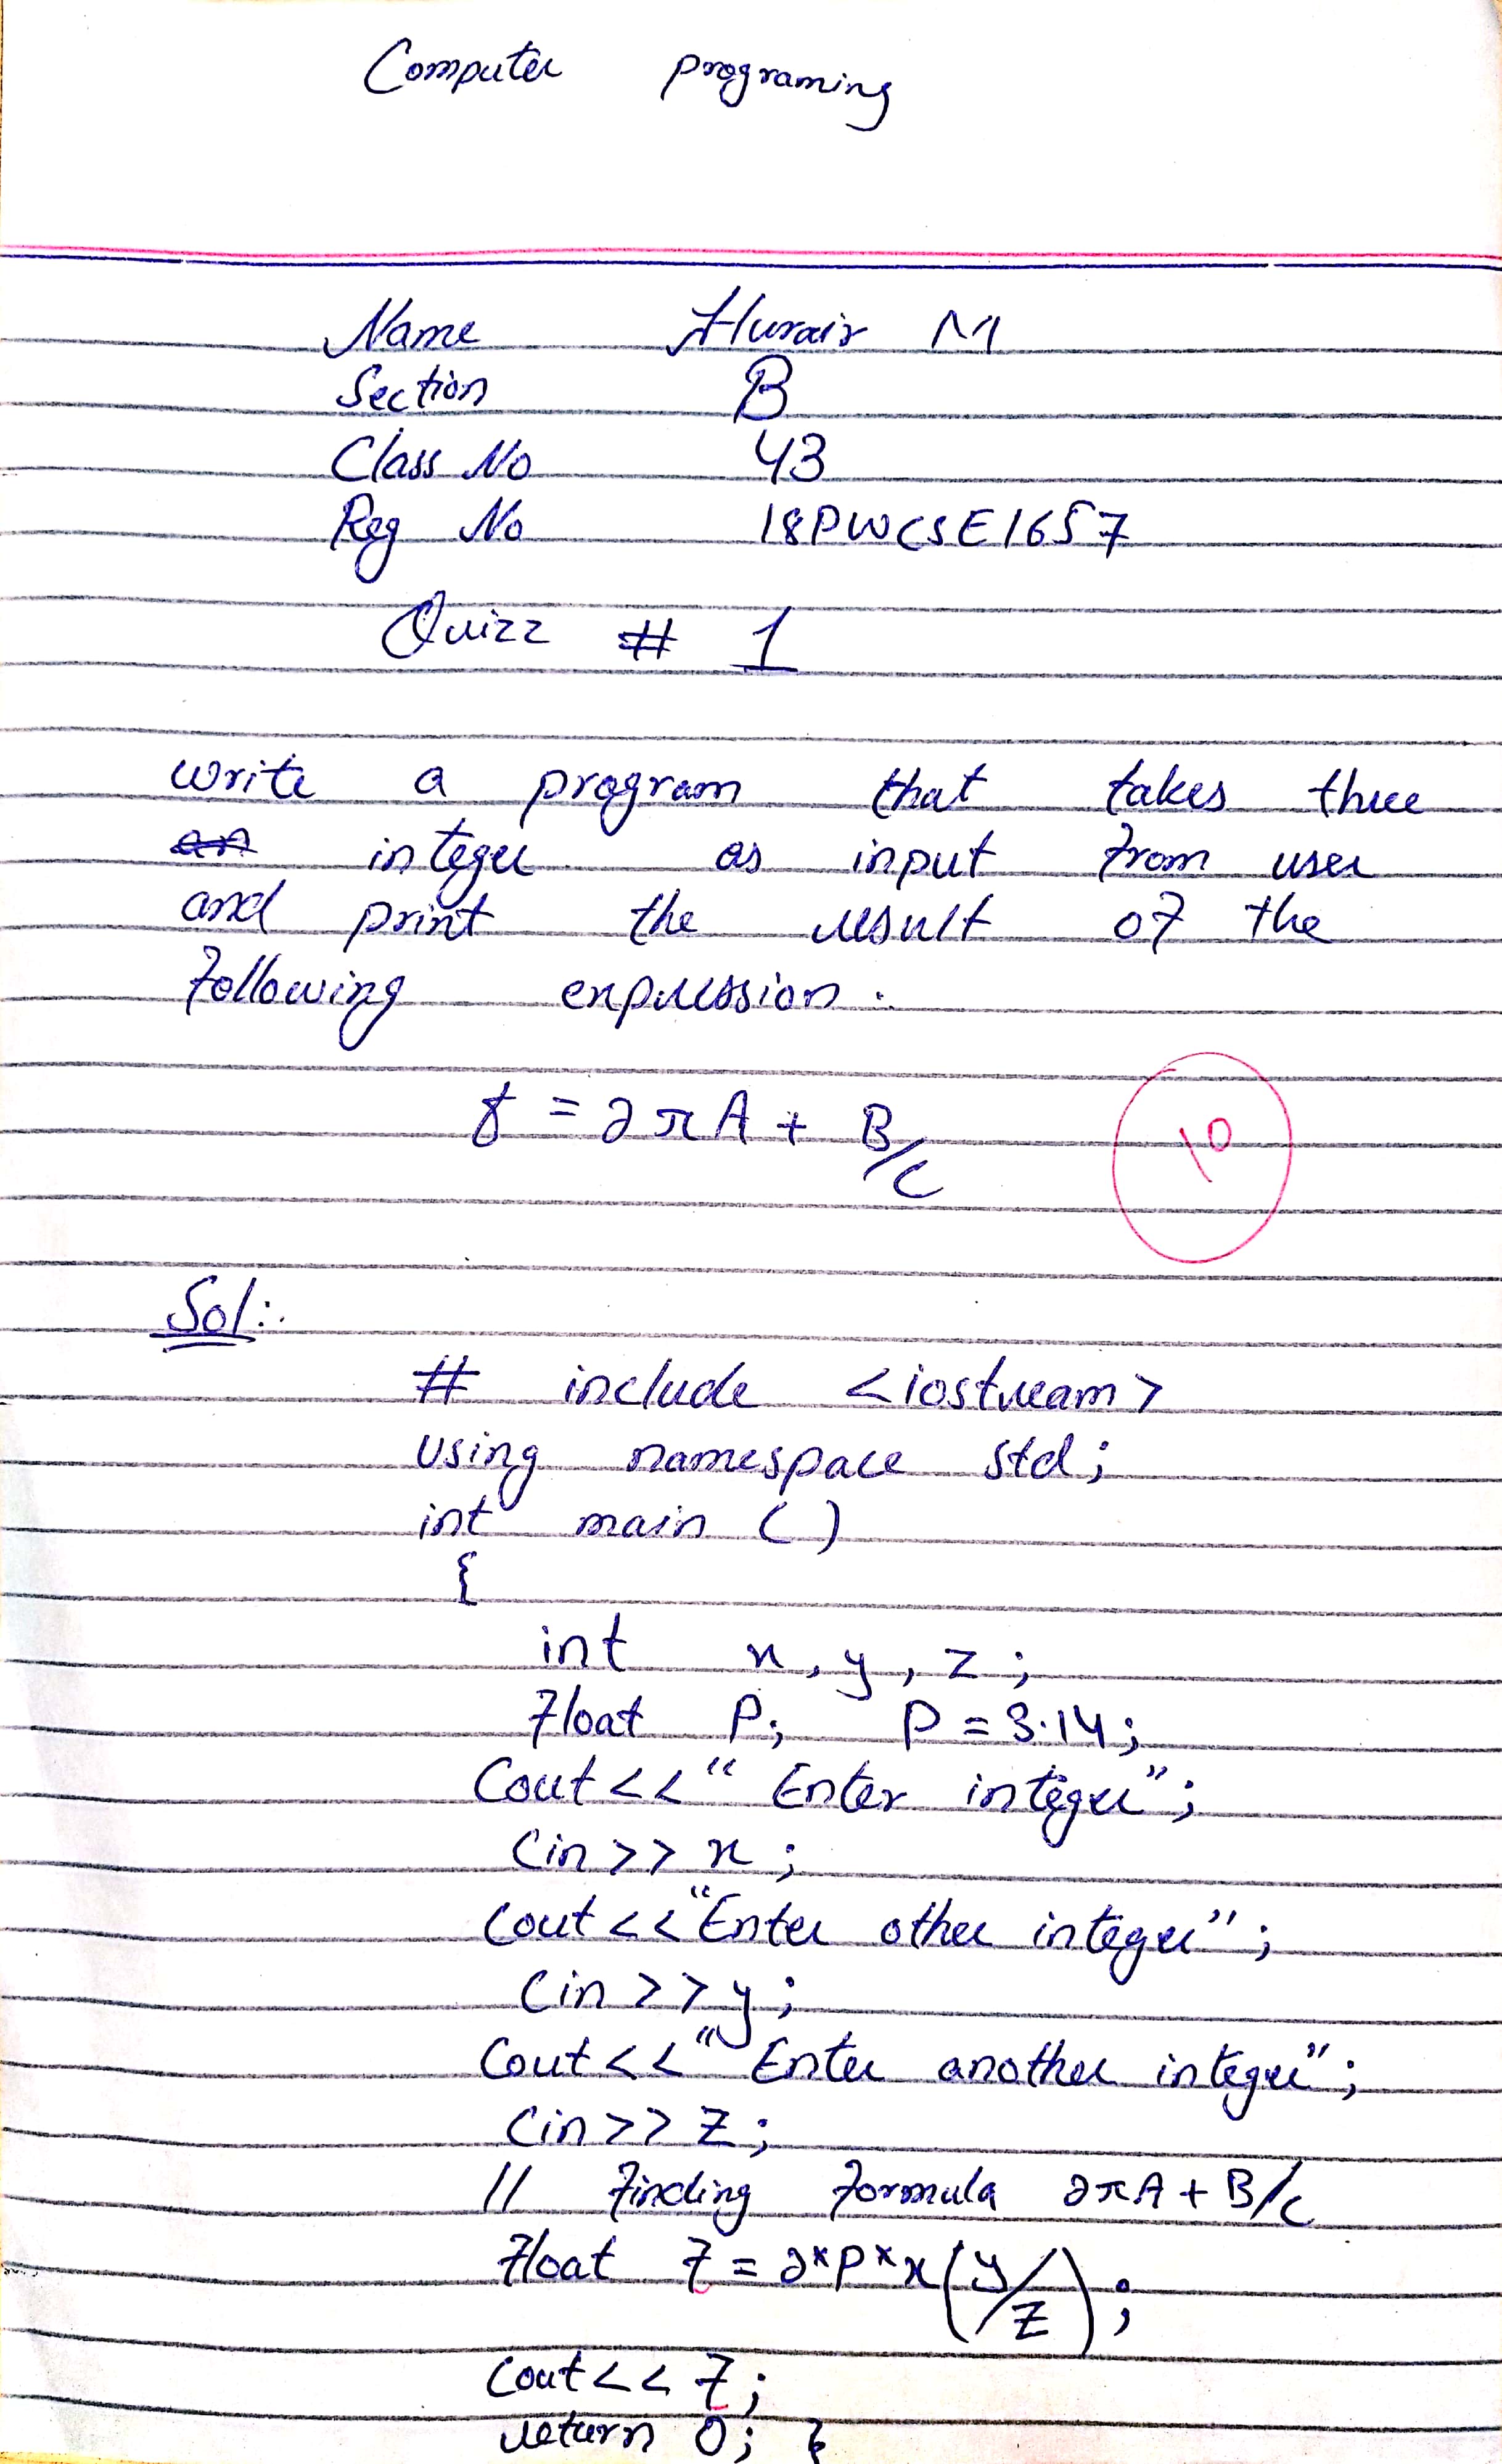 Computer programing
Name Hurair M
Section B
Class No 43
Reg No 18PWCSE1657
Quizz # 1
write a program that takes three
an integer as input from user
and print the result of the
following expression.
f = 2πA + B/C
10
Sol:.
# include <iostream>
using namespace std;
int main ()
{
int x, y, z;
float P; P = 3.14;
Cout << " Enter integer";
Cin >> x;
Cout << "Enter other integer";
Cin >> y;
Cout << " Enter another integer";
Cin >> z;
// finding formula 2πA + B/C
float f = 2*P*x(y/z);
Cout << f;
return 0; }